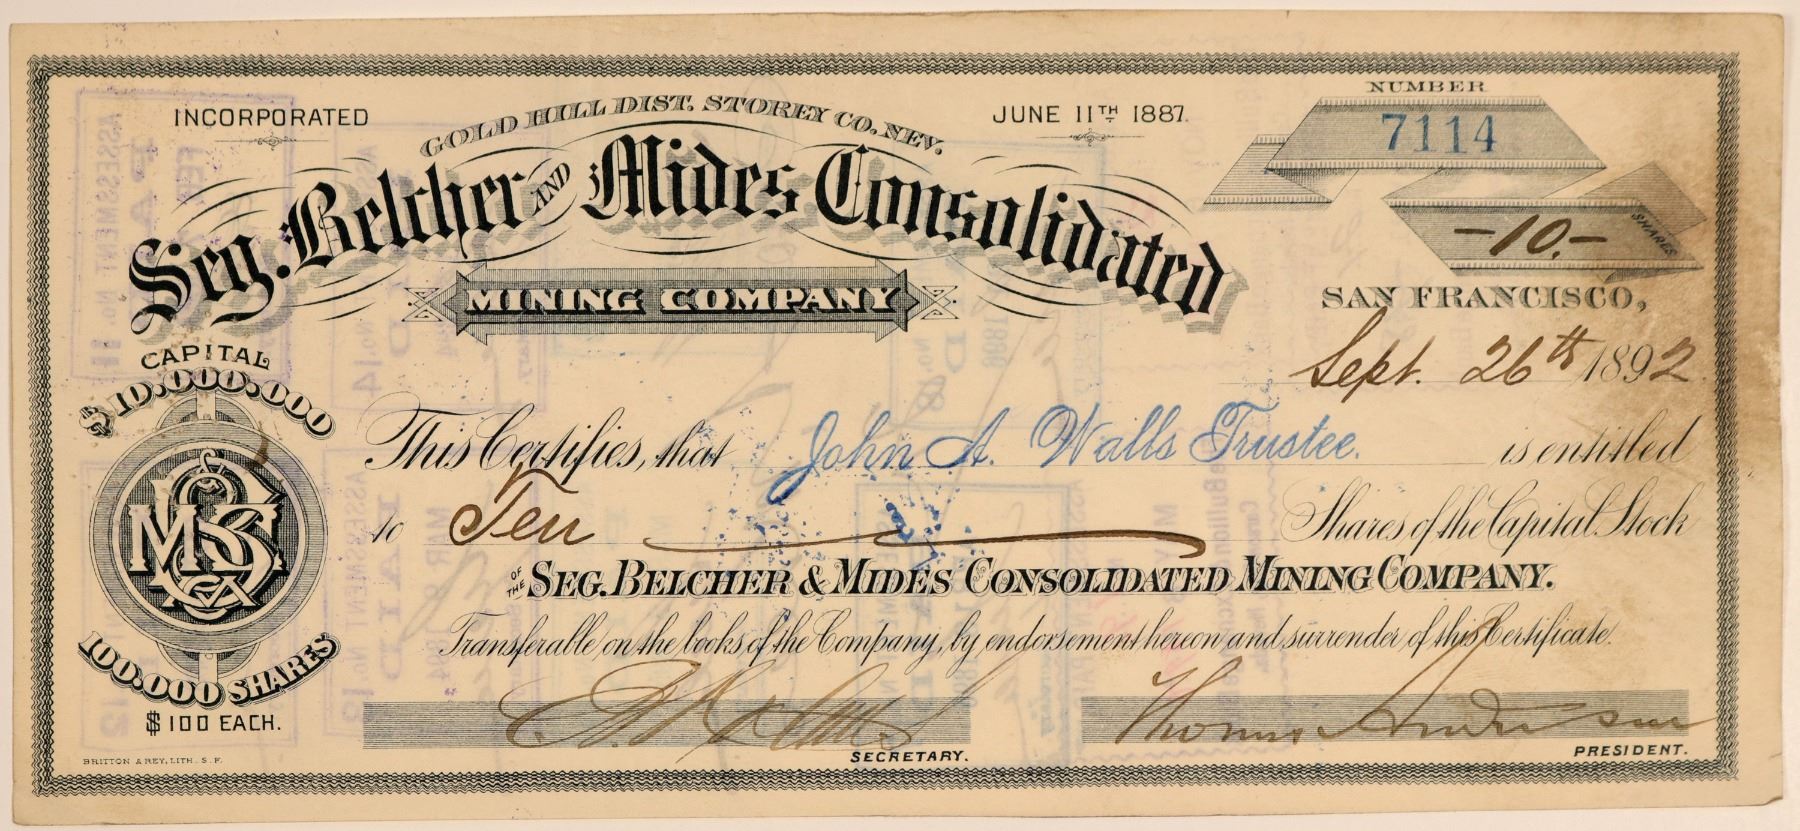 INCORPORATED
GOLD HILL DIST. STOREY CO. NEV.
JUNE 11TH 1887.
NUMBER
7114
Seg. Belcher AND Mides Consolidated
MINING COMPANY
-10.- SHARES
SAN FRANCISCO,
Sept. 26th 1892
CAPITAL
$10.000.000
This Certifies, that John A. Walls Trustee. is entitled
to Ten Shares of the Capital Stock
OF THE SEG. BELCHER & MIDES CONSOLIDATED MINING COMPANY.
Transferable on the books of the Company, by endorsement hereon and surrender of this Certificate.
100.000 SHARES
$100 EACH.
SECRETARY.
Thomas Anderson
PRESIDENT.
BRITTON & REY, LITH. S. F.